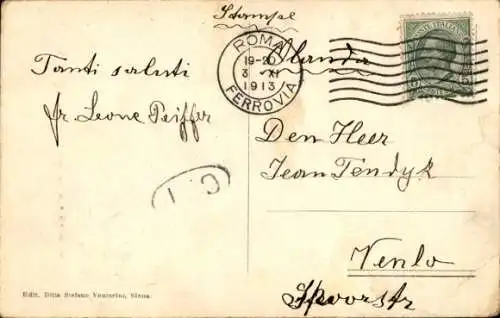 Stampe
Olanda
ROMA
19-20
3 XI
1913
FERROVIA
POSTE ITALIANE
Tanti saluti
fr. Leone Peiffer
Den Heer
Jean Tendyk
Venlo
Spoorstr
C 1
Edit. Ditta Stefano Venturini, Siena.